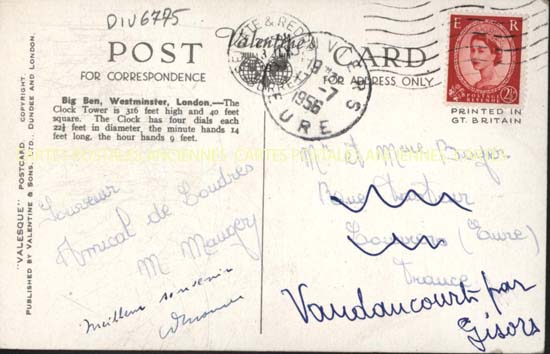 DIV6775
POST
CARD
Valentine's
FOR CORRESPONDENCE
FOR ADDRESS ONLY
Big Ben, Westminster, London.—The
Clock Tower is 316 feet high and 40 feet
square. The Clock has four dials each
22½ feet in diameter, the minute hands 14
feet long, the hour hands 9 feet.
"VALESQUE" POSTCARD. COPYRIGHT.
PUBLISHED BY VALENTINE & SONS, LTD., DUNDEE AND LONDON.
E R
POSTAGE REVENUE
2½
PRINTED IN
GT. BRITAIN
LOUVIERS
18
-7
1956
EURE
CARTES POSTALES ANCIENNES CARTES POSTALES ANCIENNES
Souvenir
Amical de Londres
M
Meilleur souvenir
Mr et Mme Boyer
Louviers (Eure)
France
Vaudancourt par
Gisors